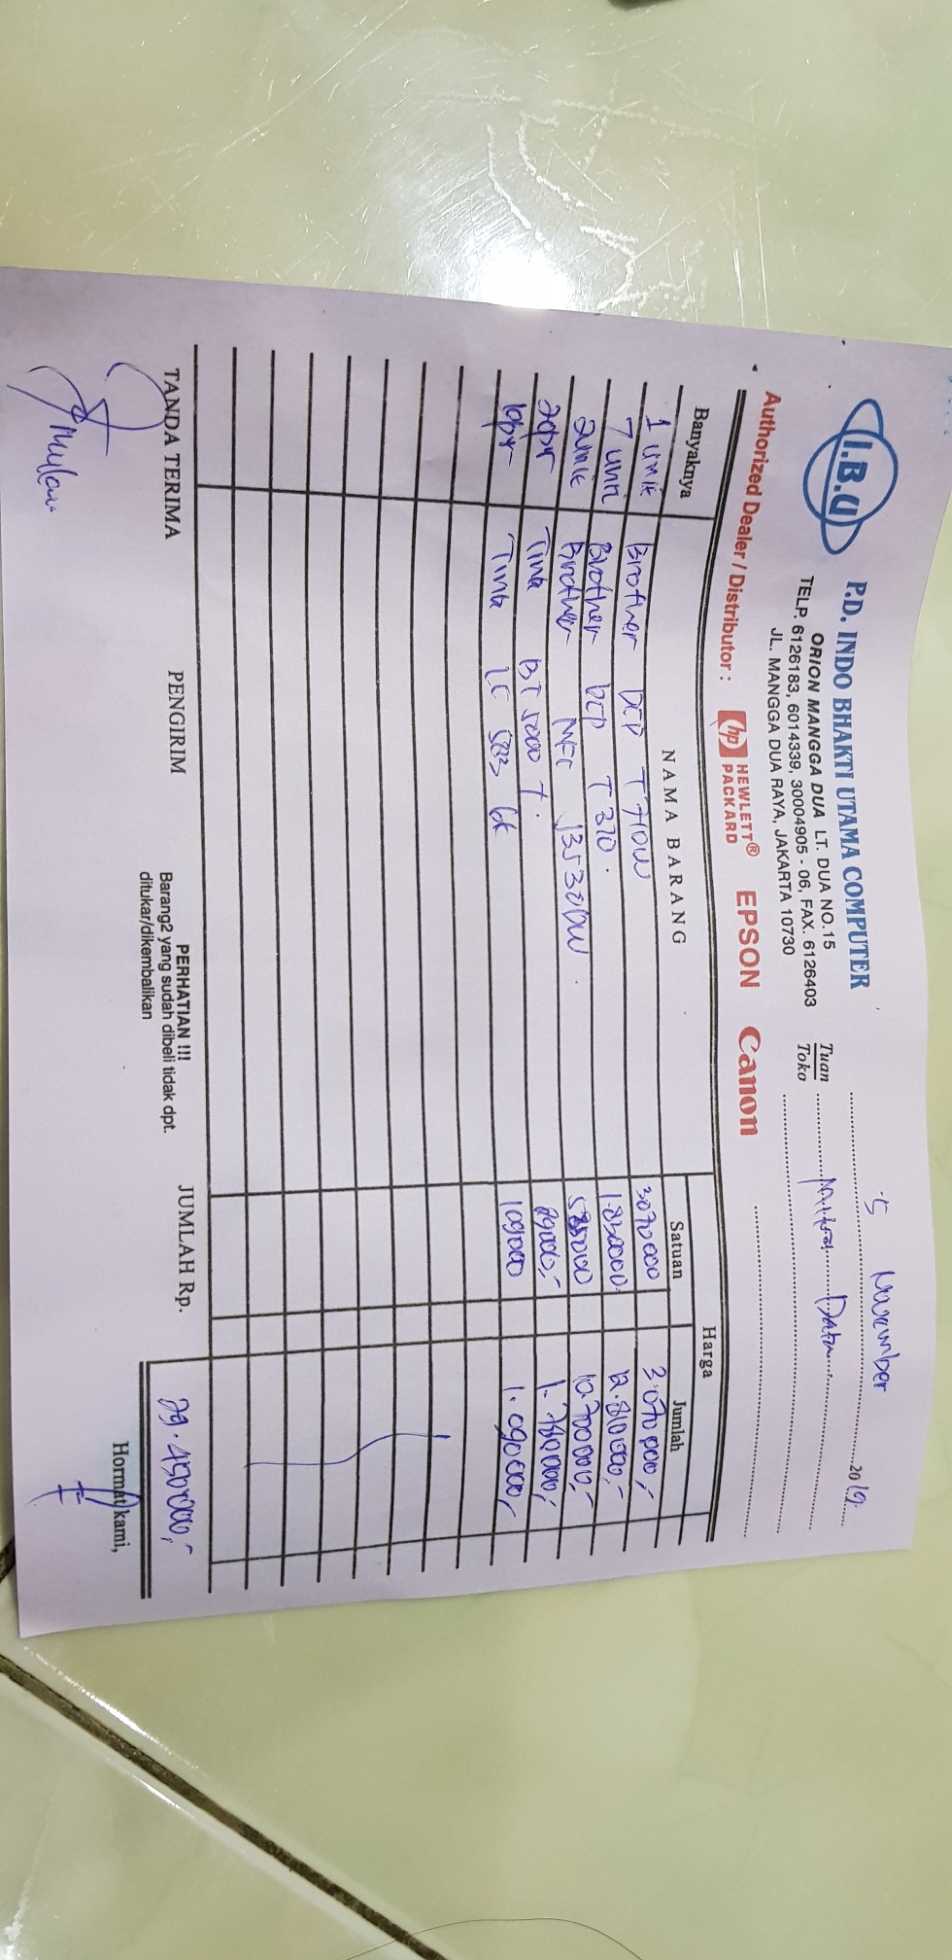 I.B.U
P.D. INDO BHAKTI UTAMA COMPUTER
ORION MANGGA DUA LT. DUA NO.15
TELP. 6126183, 6014339, 30004905 - 06, FAX. 6126403
JL. MANGGA DUA RAYA, JAKARTA 10730
5 November 2019
Tuan
Toko
Mitra Data
Authorized Dealer / Distributor : hp HEWLETT® PACKARD EPSON Canon
Banyaknya NAMA BARANG Harga
Satuan Jumlah
1 unit Brother DCP T710W 3070000 3.070.000,-
7 unit Brother DCP T310. 1.830000 12.810.000,-
2unit Brother MFC J3530DW. 10.700000,-
20pr Tinta BT 5000 7. 89000,- 1.780000,-
10pr Tinta LC 583 109000 1.090000,-
TANDA TERIMA PENGIRIM JUMLAH Rp. 29.450000,-
PERHATIAN !!!
Barang2 yang sudah dibeli tidak dpt.
ditukar/dikembalikan
Hormat kami,